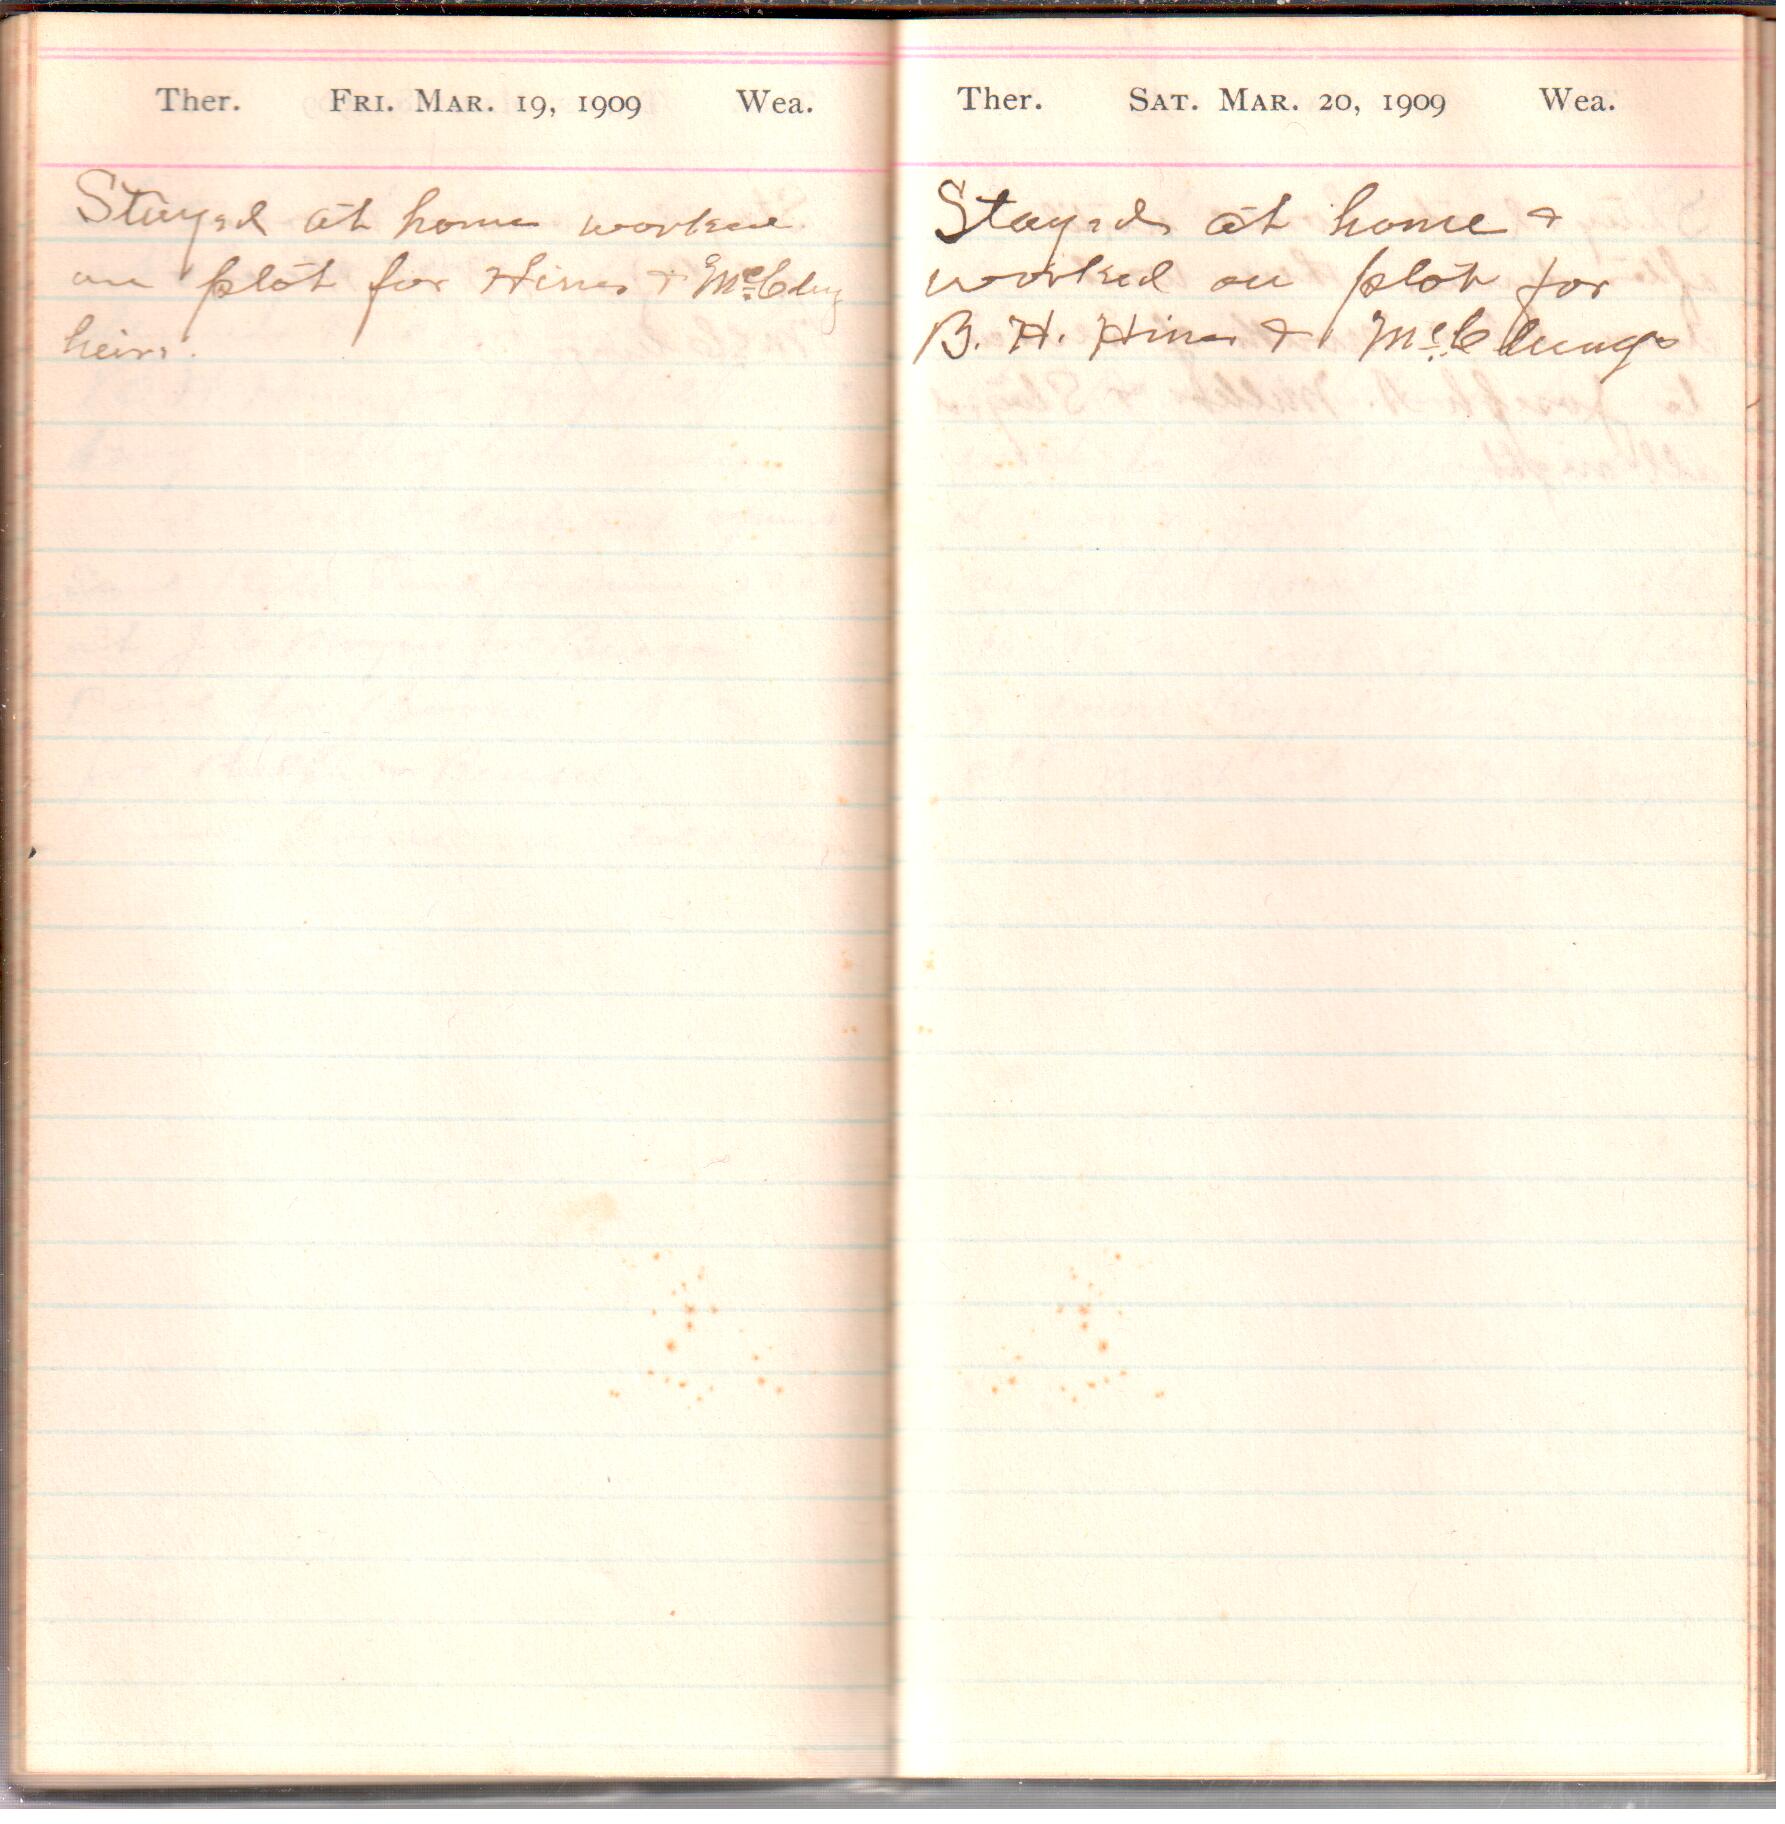 Ther. Fri. Mar. 19, 1909 Wea.
Stayed at home worked
on plot for Hines & McClung
heirs.
Ther. Sat. Mar. 20, 1909 Wea.
Stayed at home &
worked on plot for
B. H. Hines & McClungs